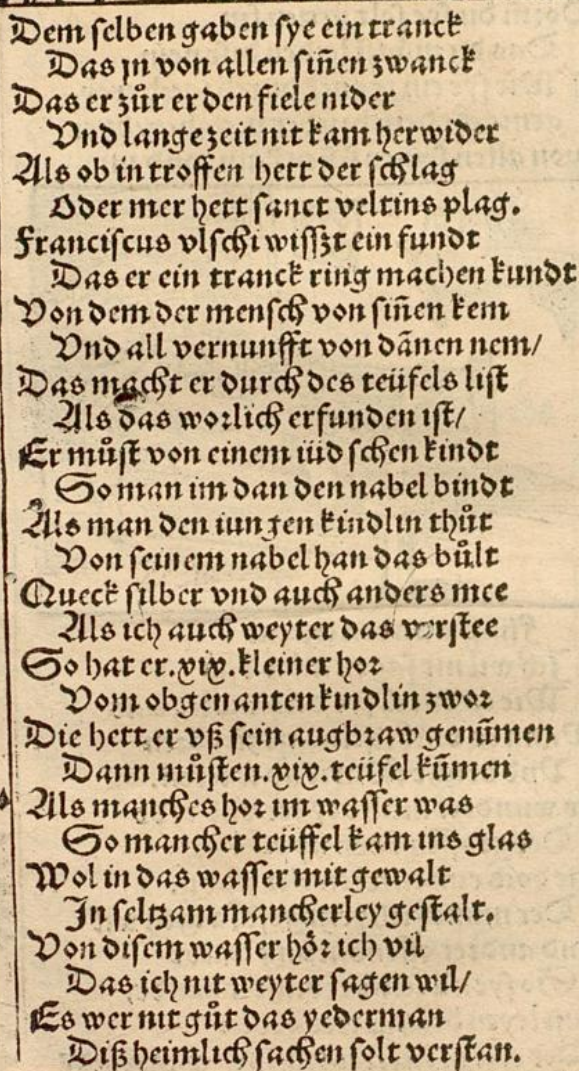 Dem selben gaben sye ein tranck
Das jn von allen siñen zwanck
Das er zůr erden fiele nider
Vnd lange zeit nit kam herwider
Als ob in troffen hett der schlag
Oder mer hett sanct veltins plag.
Franciscus vlschi wisszt ein fundt
Das er ein tranck ring machen kundt
Von dem der mensch von siñen kem
Vnd all vernunfft von dãnen nem/
Das macht er durch des teüfels list
Als das worlich erfunden ist/
Er můst von einem iüdschen kindt
So man im dan den nabel bindt
Als man den iungen kindlin thůt
Von seinem nabel han das bůlt
Queck silber vnd auch anders mee
Als ich auch weyter das verstee
So hat er.xix.kleiner hor
Vom obgenanten kindlin zwor
Die hett er vß sein augbraw genũmen
Dann můsten.xix.teüfel kũmen
Als manches hor im wasser was
So mancher teüffel kam ins glas
Wol in das wasser mit gewalt
In seltzam mancherley gestalt.
Von disem wasser hör ich vil
Das ich nit weyter sagen wil/
Es wer nit gůt das yederman
Diß heimlich sachen solt verstan.